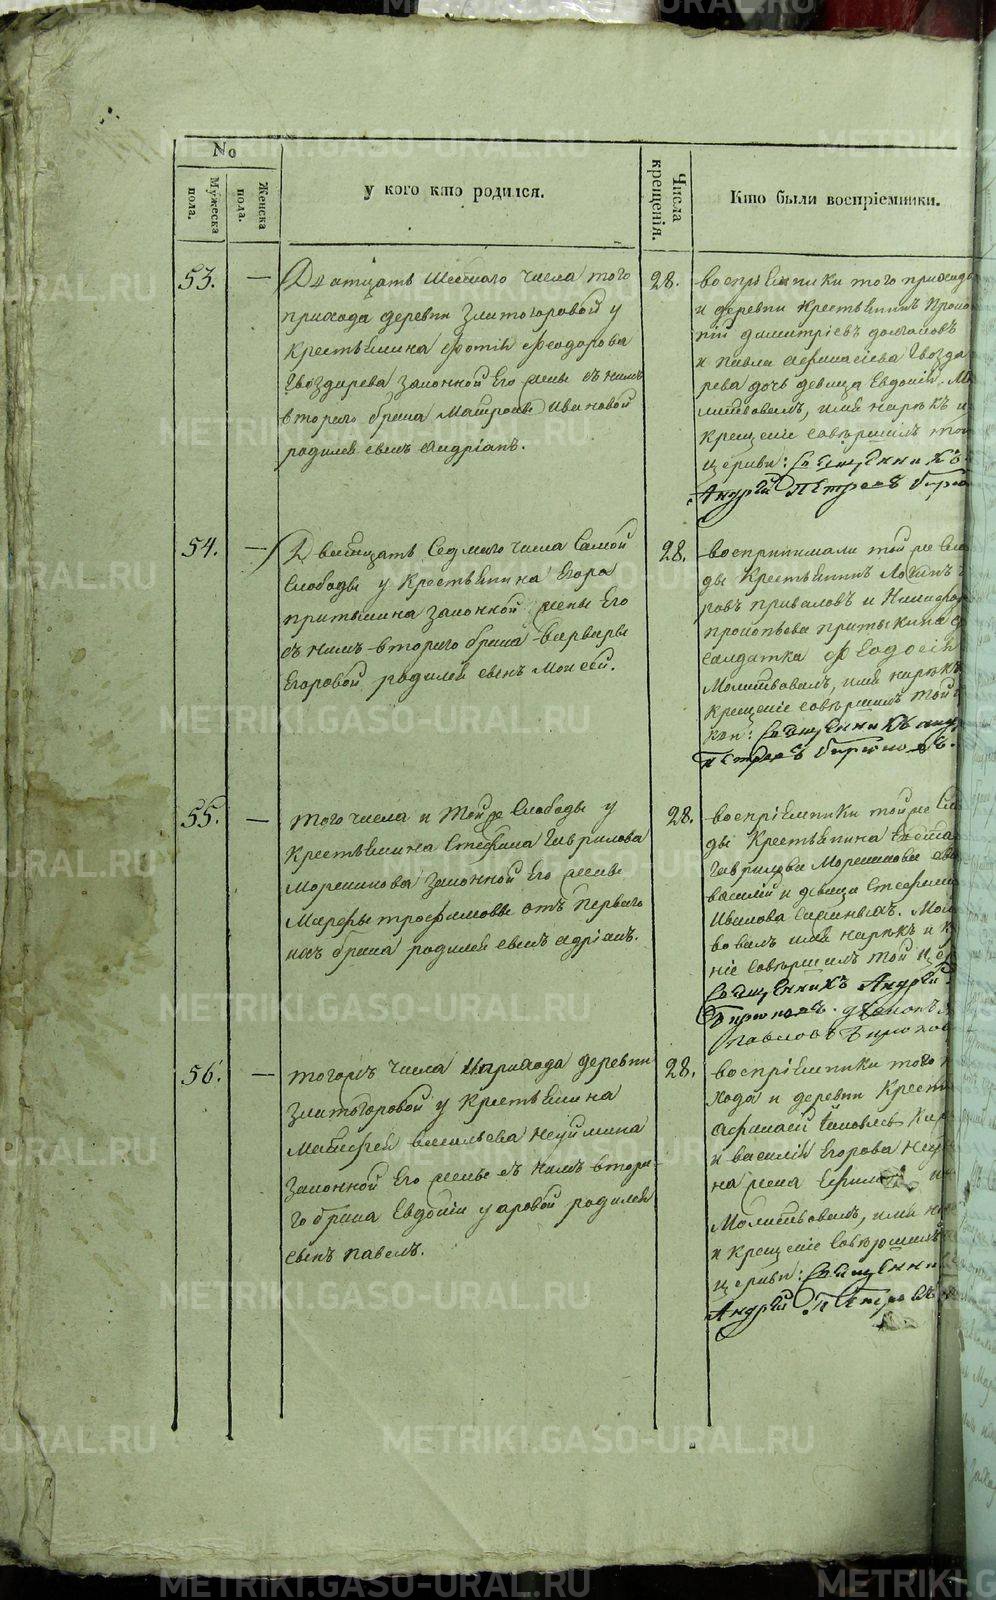 No
Мужеска пола.
Женска пола.
у кого кто родился.
Числа крещенія.
Кто были воспріемники.
53. —
Дватцать Шестаго числа того
прихода деревни Златогоровой у
Крестьянина Фотія Феодорова
Гвоздарева законной Его жены съ нимъ
втораго брака Матроны Ивановой
родился сынъ Андріанъ.
28.
воспріемники того прихода
и деревни Крестьянинъ Проко
пій Димитріевъ
и Павла Афанасіева Гвозда
рева дочь девица Евдокія. Мо
литвовалъ, имя нарѣкъ и
крещеніе совѣршилъ той
церкви: Священникъ
Андрей Петровъ
54. —
Дватцать Седмаго числа Самой
Слободы у Крестьянина Егора
Притыкина законной жены Его
съ нимъ втораго брака Варвары
Егоровой родился сынъ Моисей.
28.
воспринимали той же Сло
ды Крестьянинъ Логинъ
ровъ Приваловъ и Никифор
Прокопьева Притыкина
Салдатка Феодосія
Молитвовалъ, имя нарѣкъ
Крещеніе совѣршилъ той
Священникъ Анд
Петровъ Бирюковъ.
55. —
того числа и той же Слободы у
Крестьянина Стефана Гаврилова
законной Его жены
Марфы Трофимовы отъ Перваго
ихъ брака родился сынъ Адріанъ.
28.
воспріемники той же Сло
ды Крестьянина
Гаврилова
василий и девица Стефани
Иванова Мол
вовалъ имя нарѣкъ и к
ніе совѣршилъ той цер
Священникъ Андрей
Бирюковъ.
Павловъ Бирюков
56. —
тогожъ числа и прихода деревни
Златогоровой у Крестьянина
Матфея васильева Неуймина
законной Его жены съ нимъ втора
го брака Евдокіи уаровой родился
сынъ Павелъ.
28.
воспріемники того п
хода и деревни Кресть
Афанасей Яковлевъ Кар
и василія Егорова Неуй
на жена
Молитвовалъ, имя на
и крещеніе совѣршилъ
церкви: Священни
Андрей Петровъ
METRIKI.GASO-URAL.RU